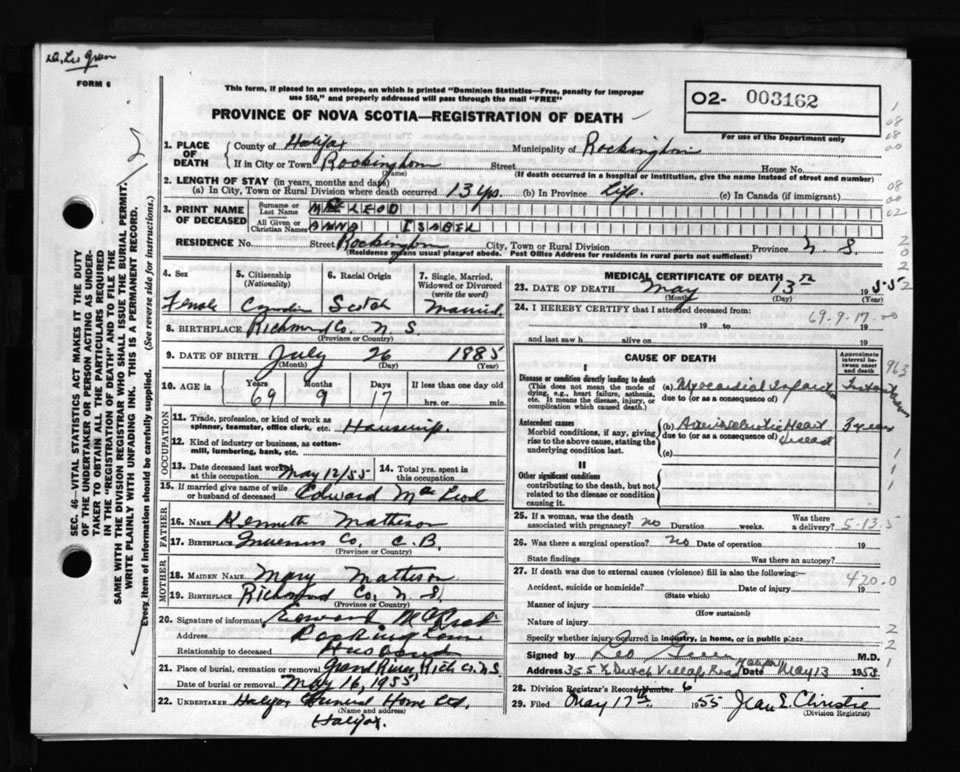 Dr. Leo Green
FORM 6
This form, if placed in an envelope, on which is printed "Dominion Statistics—Free, penalty for improper
use $50," and properly addressed will pass through the mail "FREE"
PROVINCE OF NOVA SCOTIA—REGISTRATION OF DEATH
O2- 003162
For use of the Department only
1. PLACE OF DEATH
County of Halifax Municipality of Rockingham
If in City or Town Rockingham Street House No.
(Name) (If death occurred in a hospital or institution, give the name instead of street and number)
2. LENGTH OF STAY (in years, months and days)
(a) In City, Town or Rural Division where death occurred 13 yrs. (b) In Province Life. (c) In Canada (if immigrant)
3. PRINT NAME OF DECEASED
Surname or Last Name MacLEOD
All Given or Christian Names ANNA ISABEL
RESIDENCE No. Street Rockingham City, Town or Rural Division Province N. S.
(Residence means usual place of abode. Post Office Address for residents in rural parts not sufficient)
4. Sex 5. Citizenship (Nationality) 6. Racial Origin 7. Single, Married, Widowed or Divorced (write the word)
Female Scotch Married.
8. BIRTHPLACE Richmond Co. N. S.
(Province or Country)
9. DATE OF BIRTH July 26 1885
(Month) (Day) (Year)
10. AGE in Years Months Days If less than one day old
69 9 17 hrs. or min.
OCCUPATION
11. Trade, profession, or kind of work as
spinner, teamster, office clerk, etc. Housewife.
12. Kind of industry or business, as cotton-
mill, lumbering, bank, etc.
13. Date deceased last worked at this occupation May 12/55 14. Total yrs. spent in this occupation
15. If married give name of wife
or husband of deceased Edward MacLeod
FATHER
16. NAME Kenneth Matheson
17. BIRTHPLACE Inverness Co. C. B.
(Province or Country)
MOTHER
18. MAIDEN NAME Mary Matheson
19. BIRTHPLACE Richmond Co. N. S.
(Province or Country)
20. Signature of informant Edward
Address
Relationship to deceased Husband
21. Place of burial, cremation or removal Grand River, Rich Co. N.S.
Date of burial or removal May 16, 1955
22. UNDERTAKER Halifax Funeral Home Ltd.
(Name and address)
Halifax.
MEDICAL CERTIFICATE OF DEATH
23. DATE OF DEATH May 13th 1955
(Month) (Day) (Year)
24. I HEREBY CERTIFY that I attended deceased from:
69-9-17-00
19 to 19
and last saw h alive on 19
CAUSE OF DEATH
Approximate interval between onset and death
I
Disease or condition directly leading to death
(This does not mean the mode of
dying, e.g., heart failure, asthenia,
etc. It means the disease, injury, or
complication which caused death.)
(a) Myocardial Infarction
due to (or as a consequence of)
963
Antecedent causes
Morbid conditions, if any, giving
rise to the above cause, stating the
underlying condition last.
(b) Arteriosclerotic Heart 3 years
due to (or as a consequence of) disease
(c)
II
Other significant conditions
contributing to the death, but not
related to the disease or condition
causing it.
25. If a woman, was the death
associated with pregnancy? no Duration weeks. Was there a delivery? 5-13-5
26. Was there a surgical operation? no Date of operation 19
State findings Was there an autopsy?
27. If death was due to external causes (violence) fill in also the following:—
420.0
Accident, suicide or homicide? Date of injury 19
(State which)
Manner of injury
(How sustained)
Nature of injury
Specify whether injury occurred in industry, in home, or in public place
Signed by Leo Green M.D.
Address 355 Dutch Village Road Halifax Date May 13 1955
28. Division Registrar's Record Number 6
29. Filed May 17th 1955 Jean E. Christie
(Division Registrar)
SEC. 46—VITAL STATISTICS ACT MAKES IT THE DUTY
OF THE UNDERTAKER OR PERSON ACTING AS UNDER-
TAKER TO OBTAIN ALL THE PARTICULARS REQUIRED
IN THE "REGISTRATION OF DEATH" AND TO FILE THE
SAME WITH THE DIVISION REGISTRAR WHO SHALL ISSUE THE BURIAL PERMIT.
WRITE PLAINLY WITH UNFADING INK. THIS IS A PERMANENT RECORD.
Every item of information should be carefully supplied. (See reverse side for instructions.)